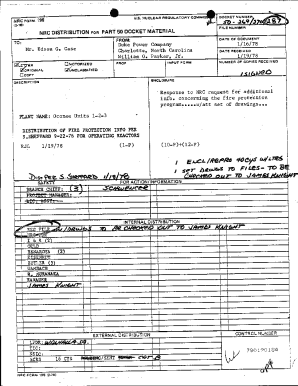 NRC FORM 195
U.S. NUCLEAR REGULATORY COMMISSION
DOCKET NUMBER
50-269/270/287
FILE NUMBER
NRC DISTRIBUTION FOR PART 50 DOCKET MATERIAL
TO:
Mr. Edson G. Case
FROM:
Duke Power Company
Charlotte, North Carolina
William O. Parker, Jr.
DATE OF DOCUMENT
1/16/78
DATE RECEIVED
1/19/78
LETTER
ORIGINAL
COPY
NOTORIZED
UNCLASSIFIED
PROP
INPUT FORM
NUMBER OF COPIES RECEIVED
1 SIGNED
DESCRIPTION
ENCLOSURE
Response to NRC request for additional
info. concerning the fire protection
program......w/att set of drawings....
PLANT NAME: Oconee Units 1-2-3
DISTRIBUTION OF FIRE PROTECTION INFO PER
S.SHEPPARD 9-22-76 FOR OPERATING REACTORS
RJL 1/19/78
(1-P)
(10-P)+(12-P)
1 ENCL/REPRO 40CYS W/LTRS
1 SET DRWGS TO FILES- TO BE
CHECKED OUT TO JAMES KNIGHT
DIST PER S SHEPPARD 1/19/78
SAFETY
FOR ACTION/INFORMATION
BRANCH CHIEF: (3)
SCHWENCER
PROJECT MANAGER:
LIC. ASST:
INTERNAL DISTRIBUTION
REG FILE W/DRWGS TO BE CHECKED OUT TO JAMES KNIGHT
NRC PDR
I & E (2)
OELD
BENAROYA
EISENHUT
WAMBACH
JAMES KNIGHT
EXTERNAL DISTRIBUTION
CONTROL NUMBER
LPDR: WALHALLA SC
TIC:
NSIC:
ACRS 16 CYS
SENT
CAT B
NRC FORM 195